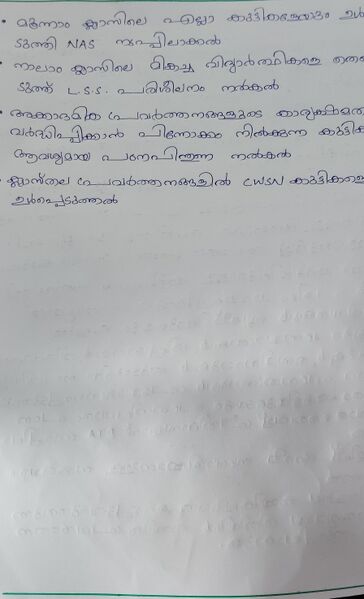 • മൂന്നാം ക്ലാസിലെ എല്ലാ കുട്ടികളെയും ഉൾ
ടുത്തി NAS നടപ്പിലാക്കൽ
• നാലാം ക്ലാസിലെ മികച്ച വിദ്യാർത്ഥികളെ തെര
ടുത്ത് L.S.S. പരിശീലനം നൽകൽ
• അക്കാദമിക പ്രവർത്തനങ്ങളുടെ കാര്യക്ഷമത
വർദ്ധിപ്പിക്കാൻ പിന്നോക്കം നിൽക്കുന്ന കുട്ടിക
ആവശ്യമായ പഠനപിന്തുണ നൽകൽ
• ക്ലാസ്തല പ്രവർത്തനങ്ങളിൽ CWSN കുട്ടികളെ
ഉൾപ്പെടുത്തൽ